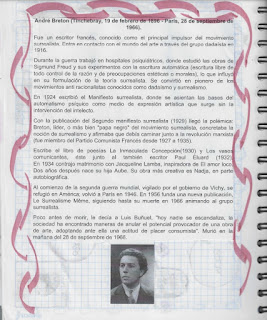 André Breton (Tinchebray, 19 de febrero de 1896 - París, 28 de septiembre de
1966).
Fue un escritor francés, conocido como el principal impulsor del movimiento
surrealista. Entra en contacto con el mundo del arte a través del grupo dadaísta en
1916.
Durante la guerra trabajó en hospitales psiquiátricos, donde estudió las obras de
Sigmund Freud y sus experimentos con la escritura automática (escritura libre de
todo control de la razón y de preocupaciones estéticas o morales), lo que influyó
en su formulación de la teoría surrealista. Se convirtió en pionero de los
movimientos anti racionalistas conocidos como dadaísmo y surrealismo.
En 1924 escribió el Manifiesto surrealista, donde se asientan las bases del
automatismo psíquico como medio de expresión artística que surge sin la
intervención del intelecto.
Con la publicación del Segundo manifiesto surrealista (1929) llegó la polémica:
Breton, líder, o más bien "papa negro" del movimiento surrealista, concretaba la
noción de surrealismo y afirmaba que debía caminar junto a la revolución marxista
(fue miembro del Partido Comunista Francés desde 1927 a 1935).
Escribe el libro de poesías La Inmaculada Concepción(1930) y Los vasos
comunicantes, éste junto al también escritor Paul Éluard (1932).
En 1934 contrajo matrimonio con Jacqueline Lamba, inspiradora de El amor loco.
Dos años después nace su hija Aube. Su obra más creativa es Nadja, en parte
autobiográfica.
Al comienzo de la segunda guerra mundial, vigilado por el gobierno de Vichy, se
refugió en América; volvió a París en 1946. En 1956 funda una nueva publicación,
Le Surréalisme Même, siguiendo hasta su muerte en 1966 animando al grupo
surrealista.
Poco antes de morir, le decía a Luis Buñuel, "hoy nadie se escandaliza, la
sociedad ha encontrado maneras de anular el potencial provocador de una obra
de arte, adoptando ante ella una actitud de placer consumista". Murió en la
mañana del 28 de septiembre de 1966.